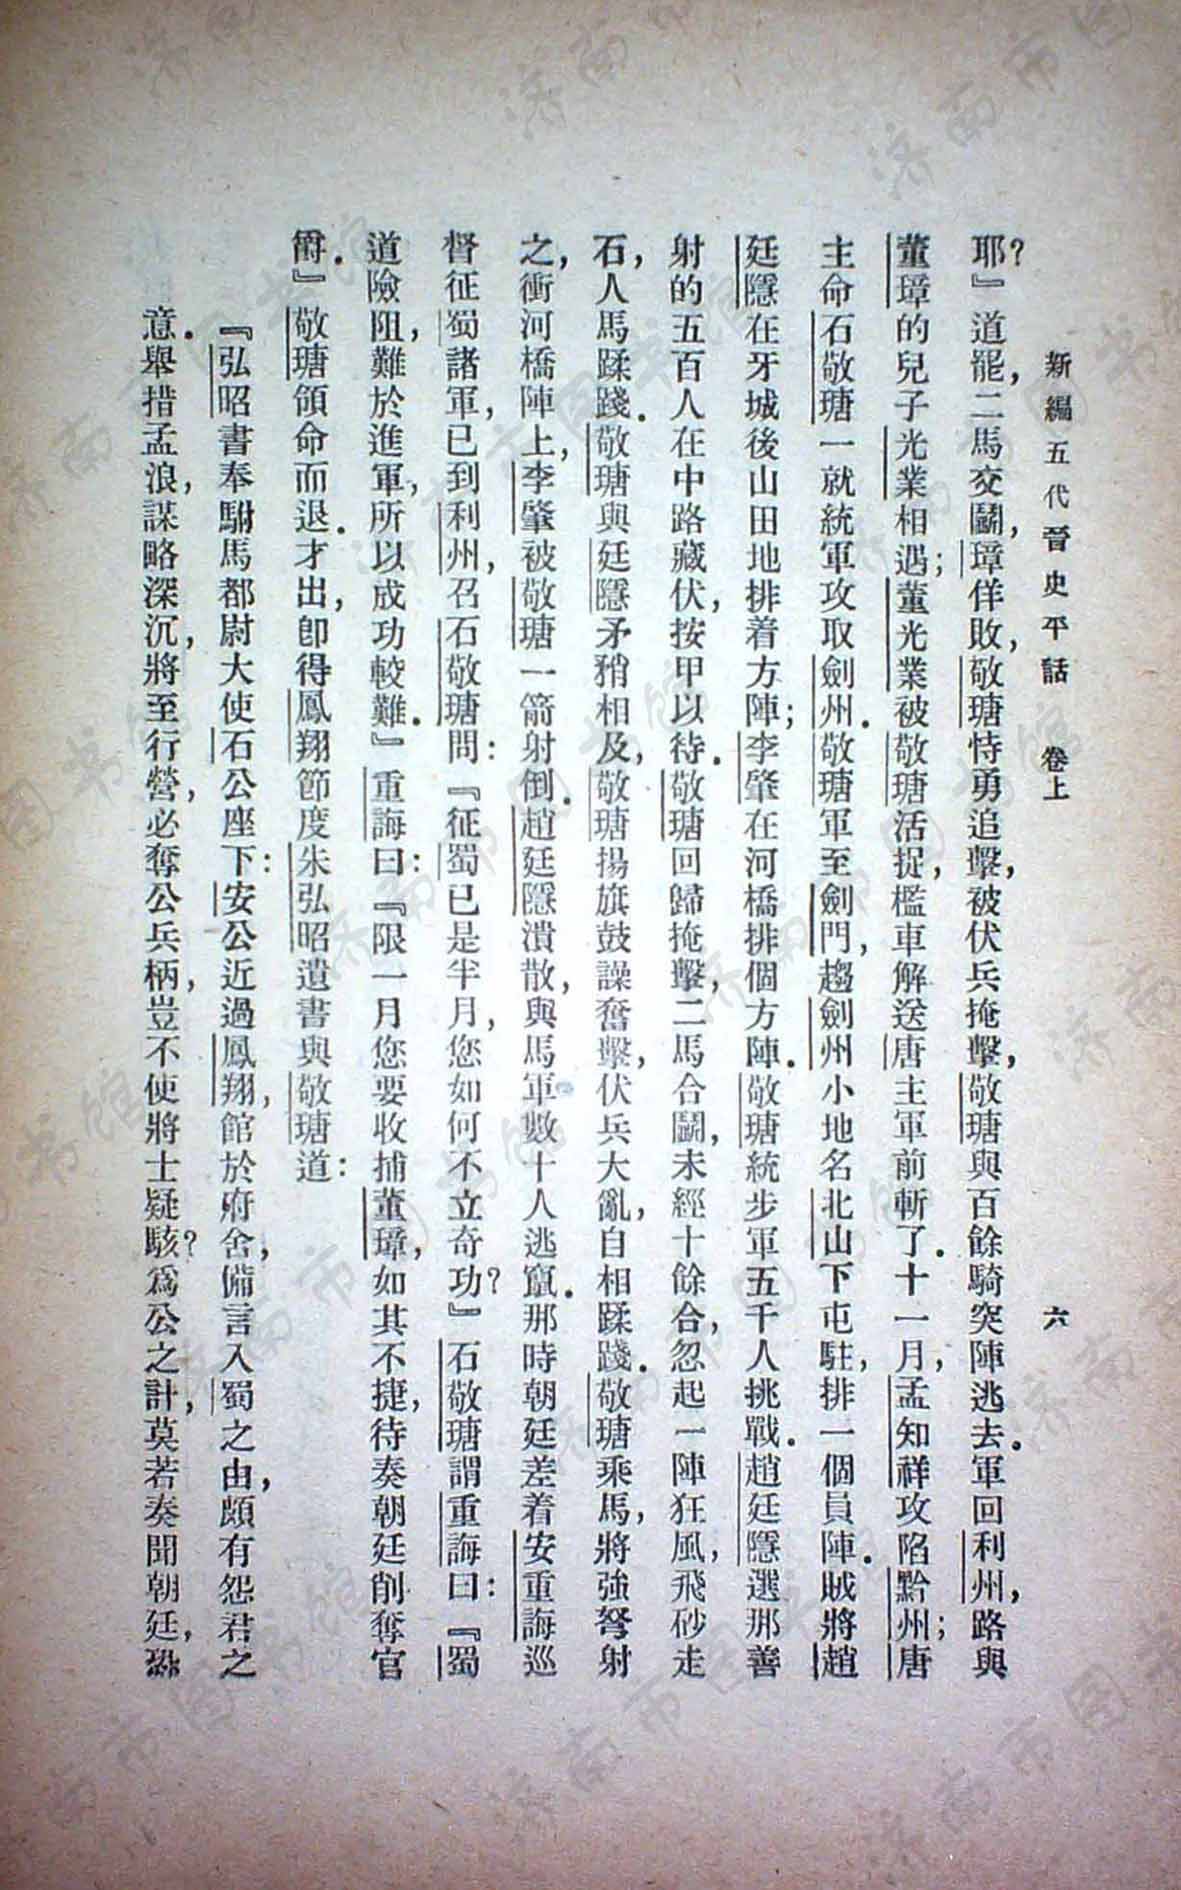 新編五代晉史平話　卷上　六
耶？』道罷，二馬交鬬，璋佯敗，敬瑭恃勇追擊，被伏兵掩擊，敬瑭與百餘騎突陣逃去．軍回利州，路與
董璋的兒子光業相遇；董光業被敬瑭活捉，檻車解送唐主軍前斬了．十一月，孟知祥攻陷黔州；唐
主命石敬瑭一就統軍攻取劍州．敬瑭軍至劍門，趨劍州小地名北山下屯駐，排一個員陣．賊將趙
廷隱在牙城後山田地排着方陣；李肇在河橋排個方陣．敬瑭統步軍五千人挑戰．趙廷隱選那善
射的五百人在中路藏伏，按甲以待．敬瑭回歸掩擊，二馬合鬬，未經十餘合，忽起一陣狂風，飛砂走
石，人馬蹂踐．敬瑭與廷隱矛矟相及，敬瑭揚旗鼓譟奮擊，伏兵大亂，自相蹂踐．敬瑭乘馬，將強弩射
之，衝河橋陣上，李肇被敬瑭一箭射倒．趙廷隱潰散，與馬軍數十人逃竄．那時朝廷差着安重誨巡
督征蜀諸軍，已到利州，召石敬瑭問：『征蜀已是半月，您如何不立奇功？』石敬瑭謂重誨曰：『蜀
道險阻，難於進軍，所以成功較難．』重誨曰：『限一月您要收捕董璋，如其不捷，待奏朝廷削奪官
爵．』敬瑭領命而退．才出，卽得鳳翔節度朱弘昭遺書與敬瑭道：
『弘昭書奉駙馬都尉大使石公座下：安公近過鳳翔，館於府舍，備言入蜀之由，頗有怨君之
意．舉措孟浪，謀略深沉，將至行營，必奪公兵柄，豈不使將士疑駭？爲公之計，莫若奏聞朝廷，恐
济南市图书馆